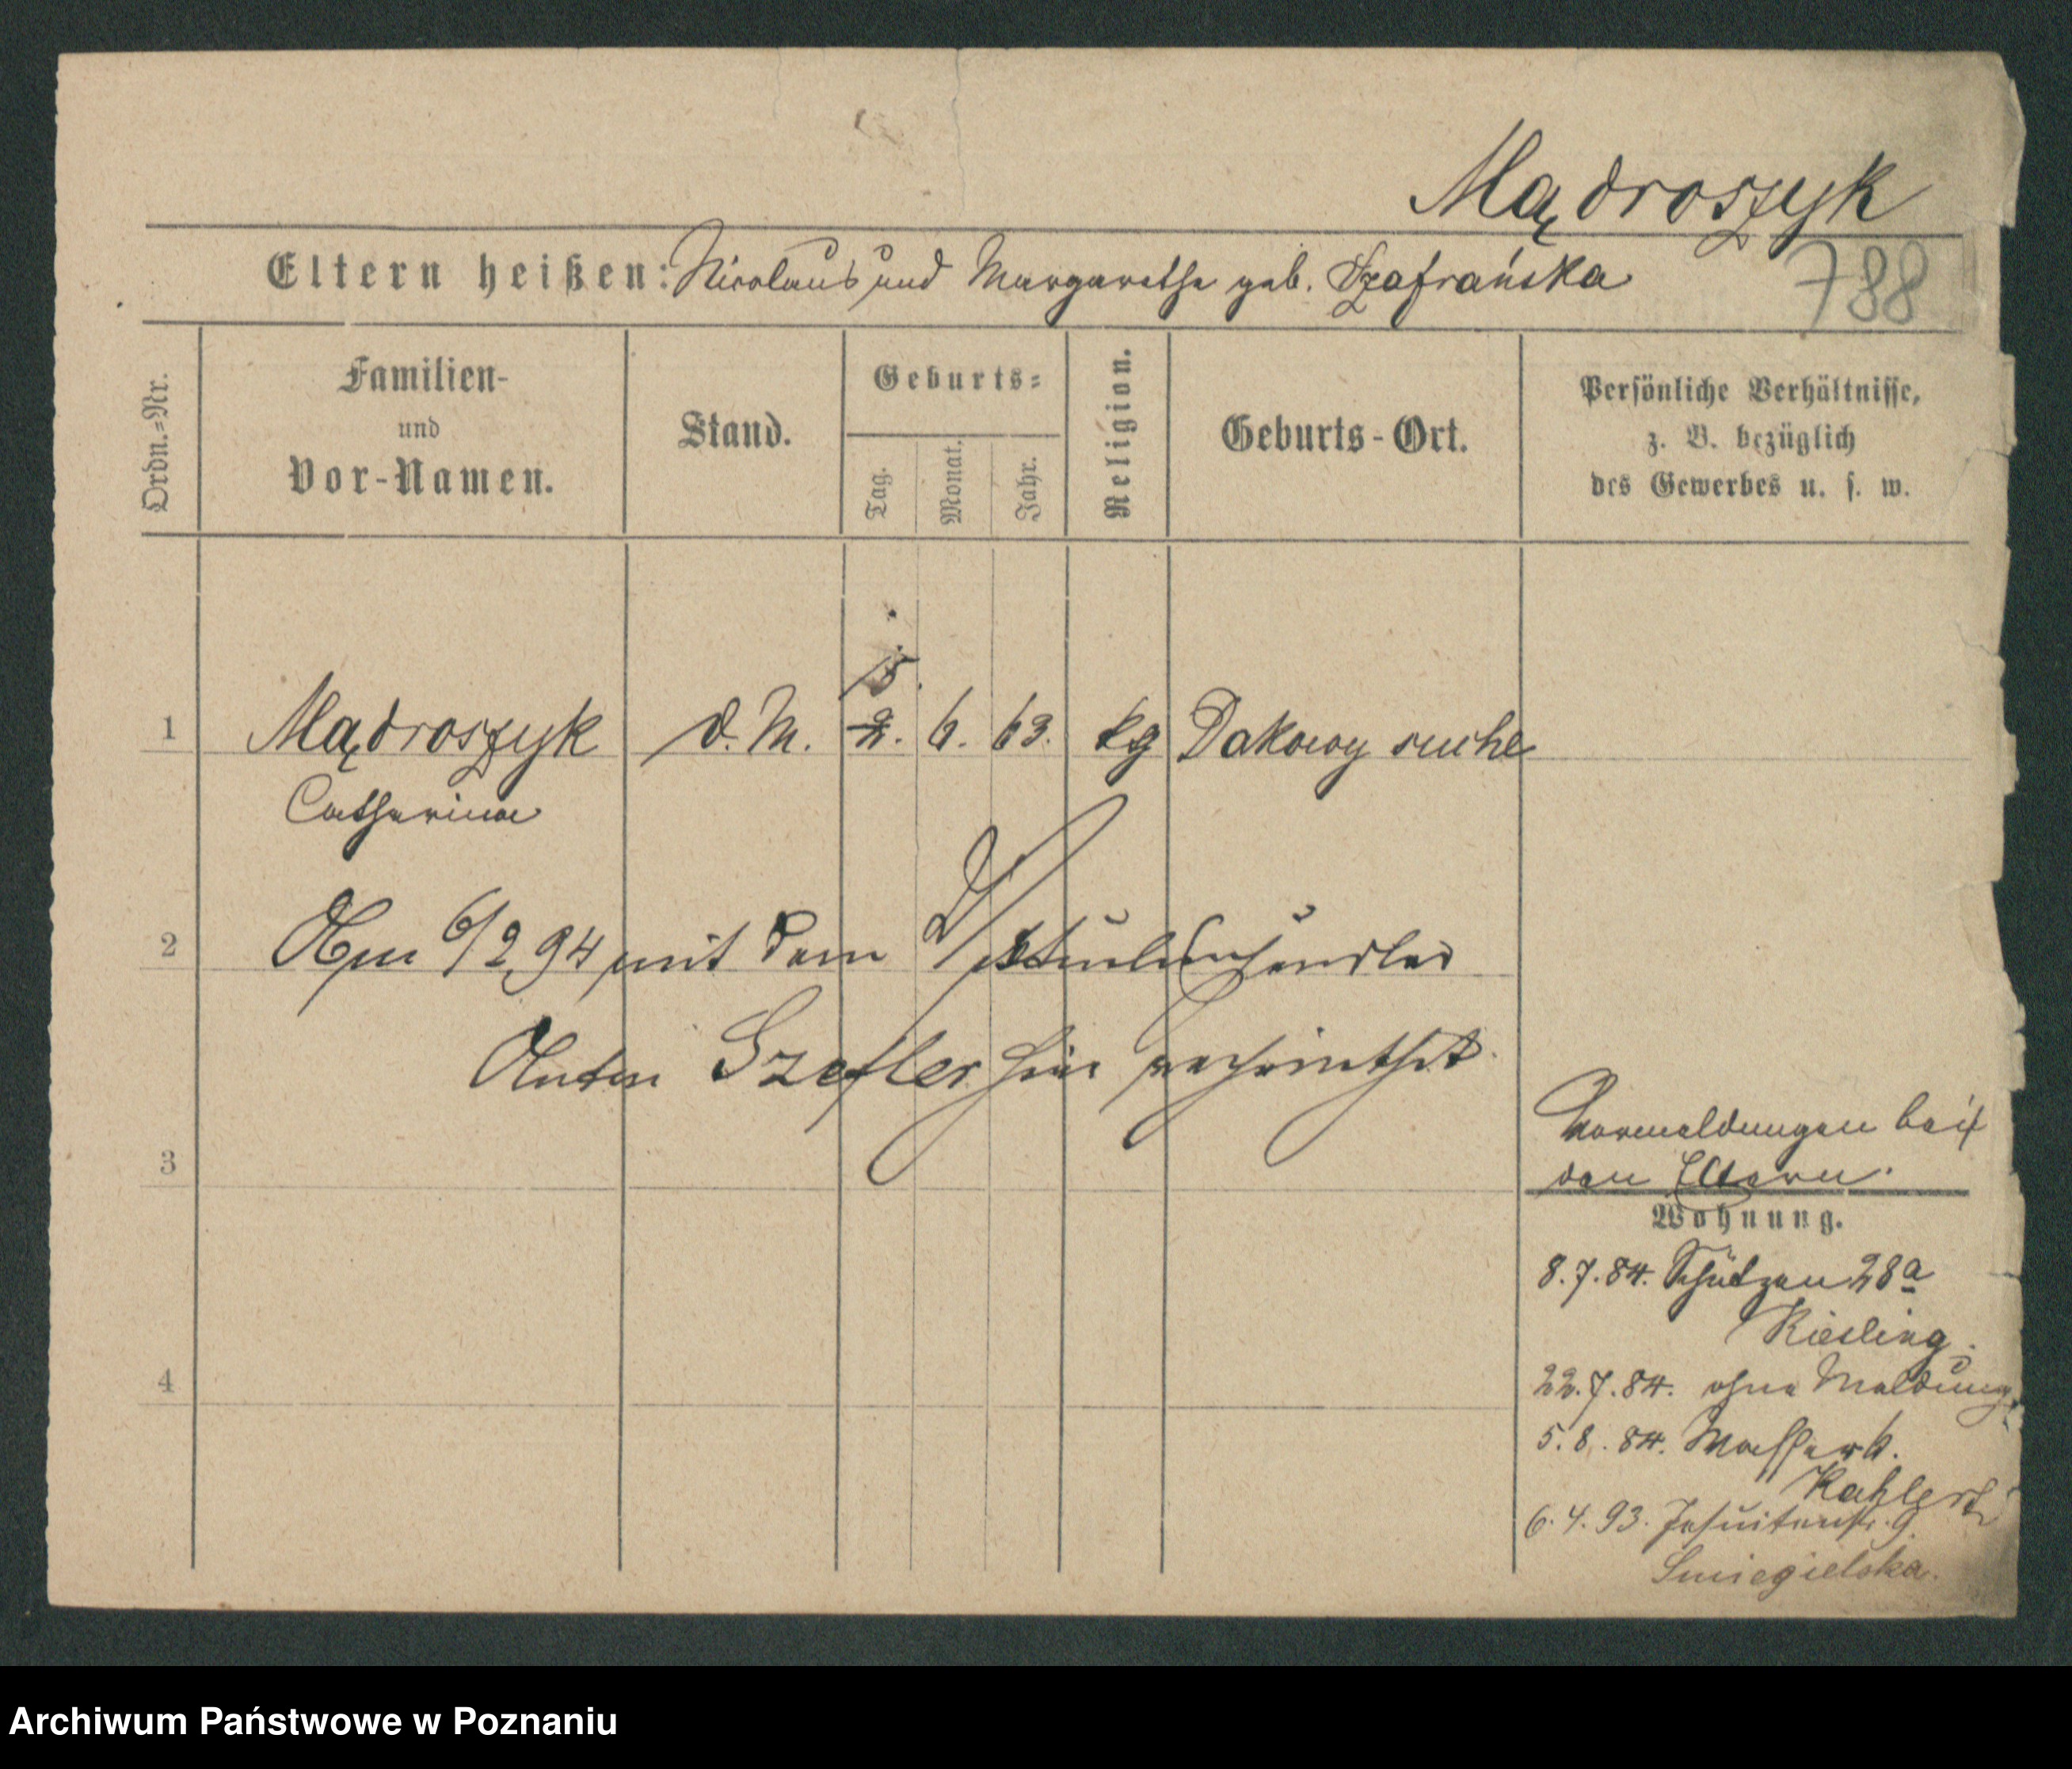 Mądroszyk
Eltern heißen: Nicolaus und Margarethe geb. Szafrańska
788
Ordn.=Nr.
Familien-
und
Vor-Namen.
Stand.
Geburts=
Tag.
Monat.
Jahr.
Religion.
Geburts-Ort.
Persönliche Verhältnisse,
z. B. bezüglich
des Gewerbes u. s. w.
15.
1 Mądroszyk d. M. 2. 6. 63. kg Dakowy suche
Catharina
2 Am 6/2 94 mit dem
Anton Szefler hier verheirathet.
3
Vormeldungen bei
den Eltern.
Wohnung.
8.7.84. Schützen 28a
Riesling.
4
22.7.84. ohne Meldung.
5.8.84. Wasser
Kahlert
6.4.93. Jesuitenstr. 9.
Smiegielska.
Archiwum Państwowe w Poznaniu